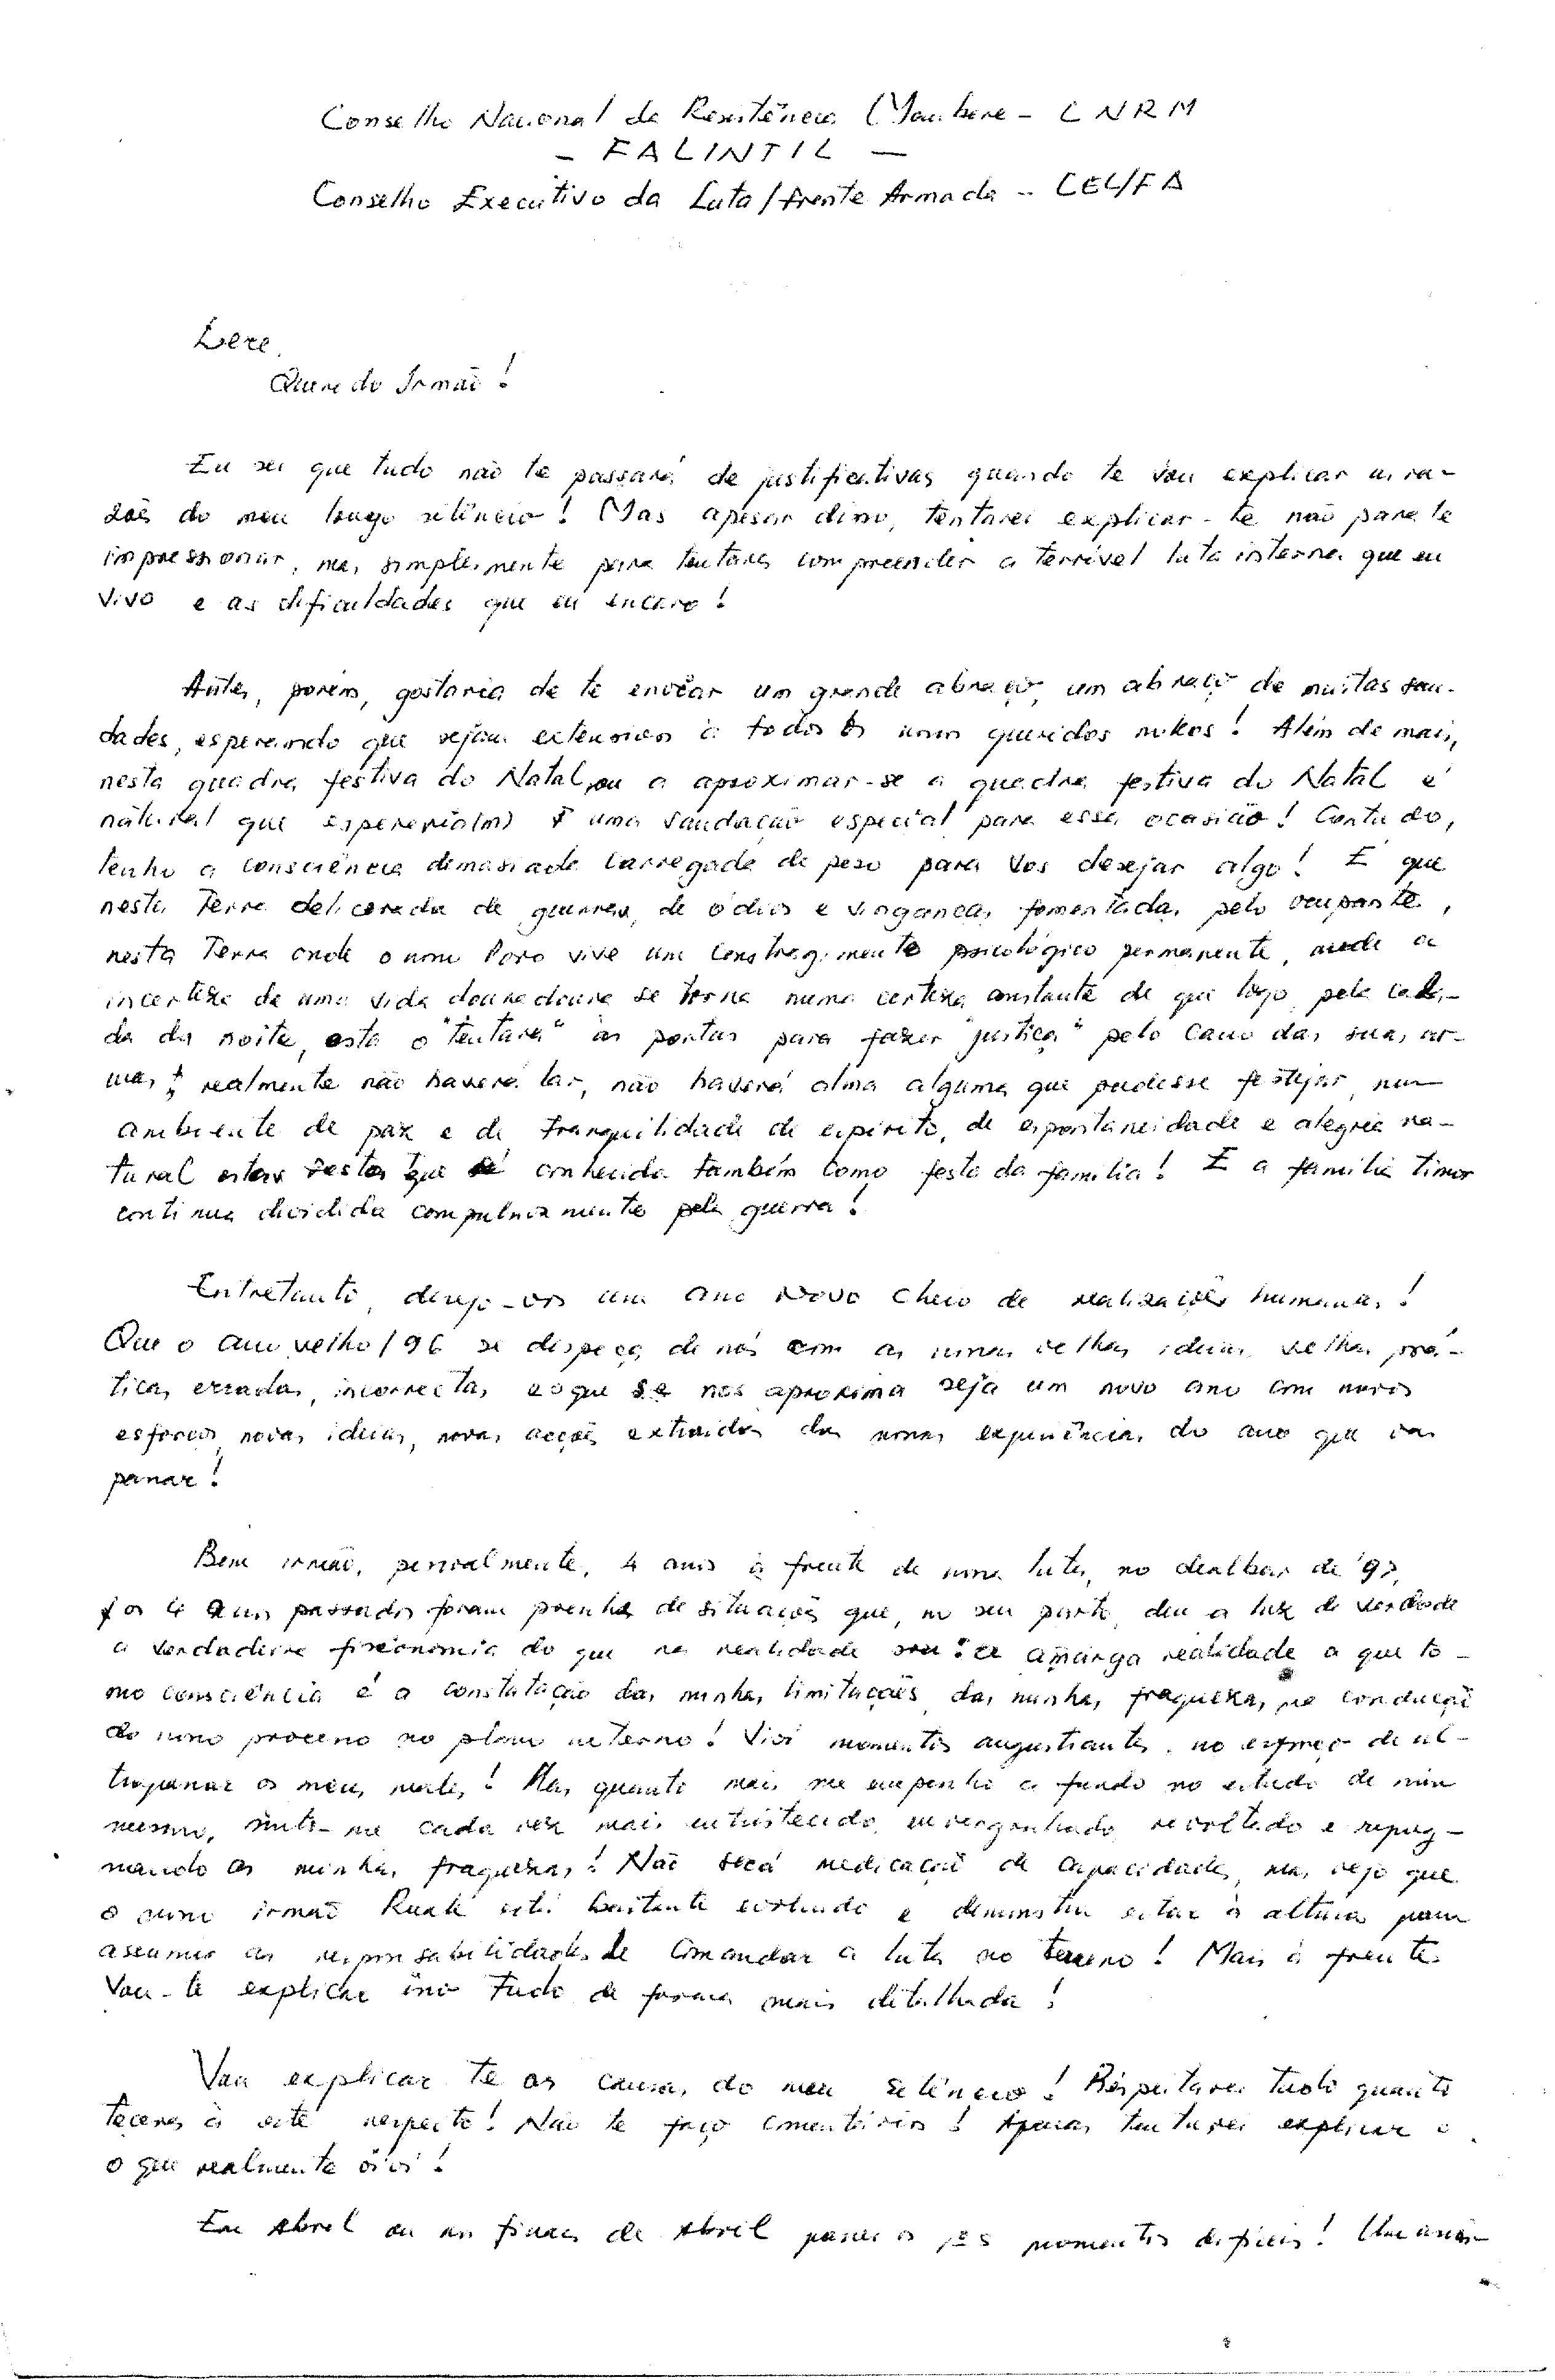 Conselho Nacional da Resistência Maubere - CNRM
- FALINTIL -
Conselho Executivo da Luta/Frente Armada - CEL/FA
Lere,
Querido Irmão!
Eu sei que tudo não te passará de justificativas quando te vou explicar as ra-
zões do meu longo silêncio! Mas apesar disso, tentarei explicar-te não para te
impressionar, mas simplesmente para tentares compreender a terrível luta interna que eu
vivo e as dificuldades que eu encaro!
Antes, porém, gostaria de te enviar um grande abraço, um abraço de muitas sau-
dades, esperando que sejam extensivos a todos os nossos queridos manos! Além de mais,
nesta quadra festiva do Natal, ou a aproximar-se a quadra festiva do Natal é
natural que esperaria(m) uma saudação especial para essa ocasião! Contudo,
tenho a consciência demasiado carregada de peso para vos desejar algo! É que
nesta Terra dilacerada de guerras, de ódios e vinganças fomentadas pelo ocupante,
nesta Terra onde o nosso Povo vive um constrangimento psicológico permanente, onde a
incerteza de uma vida douradoura se torna numa certeza constante de que logo, pela cala-
da da noite, está o "tentara" às portas para fazer "justiça" pelo cano das suas ar-
mas; realmente não haverá lar, não haverá alma alguma que pudesse festejar num
ambiente de paz e de tranquilidade de espírito, de espontaneidade e alegria na-
tural estas festas que é conhecida também como festa da família! E a família timor
continua dividida compulsivamente pela guerra!
Entretanto, desejo-vos um Ano Novo cheio de realizações humanas!
Que o ano velho/96 se despeça de nós com as nossas velhas ideias, velhas prá-
ticas erradas, incorrectas e o que se nos aproxima seja um novo ano com novos
esforços, novas ideias, novas acções extraídas das nossas experiências do ano que vai
passar!
Bem irmão, pessoalmente, 4 anos à frente da nossa luta, no dealbar de 97,
os 4 anos passados foram prenhes de situações que, no seu parto, deu a luz de verdade
a verdadeira fisionomia do que na realidade sou: a amarga realidade a que to-
mo consciência é a constatação das minhas limitações, das minhas fraquezas, na condução
do nosso processo no plano interno! Vivi momentos angustiantes, no esforço de ul-
trapassar os meus males! Mas quanto mais me empenho a fundo no estudo de mim
mesmo, sinto-me cada vez mais entristecido, envergonhado, revoltado e repug-
nando as minhas fraquezas! Não será medicação de capacidades, mas vejo que
o nosso irmão Ruak está bastante evoluido e demonstra estar à altura para
assumir as responsabilidades de Comandar a luta no terreno! Mais à frente
vou-te explicar isso tudo de forma mais detalhada!
Vou explicar-te as causas do meu silêncio! Respeitarei tudo quanto
teceres a este respeito! Não te faço comentários! Apenas tentarei explicar
o que realmente vivi!
Em Abril ou em finais de Abril passei os momentos difíceis! Uma